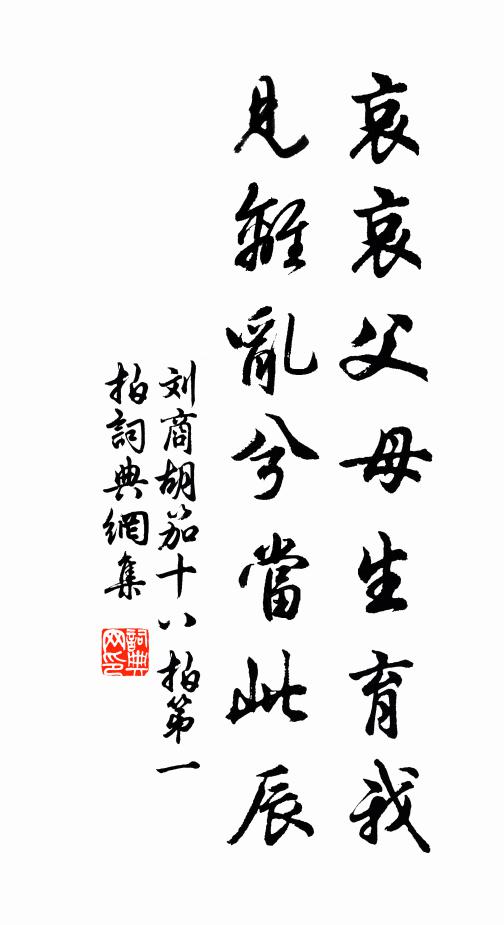 哀哀父母生育我
見離亂兮當此辰
刘商胡笳十八拍第一
拍詞典網集
詞典网印